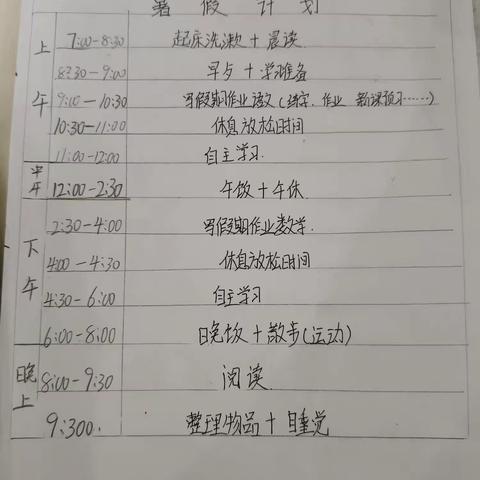 暑 假 计 划
上午
7:00-8:30 起床洗漱+晨读.
8:30-9:00 早歺+学准备
9:00-10:30 写假期作业语文(练字.作业 新课预习……)
10:30-11:00 休息放松时间
11:00-12:00 自主学习.
中午
12:00-2:30 午饭+午休.
下午
2:30-4:00 写假期作业数学.
4:00-4:30 休息放松时间
4:30-6:00 自主学习
6:00-8:00 晚饭+散步(运动)
晚上
8:00-9:30 阅读.
9:300. 整理物品+睡觉